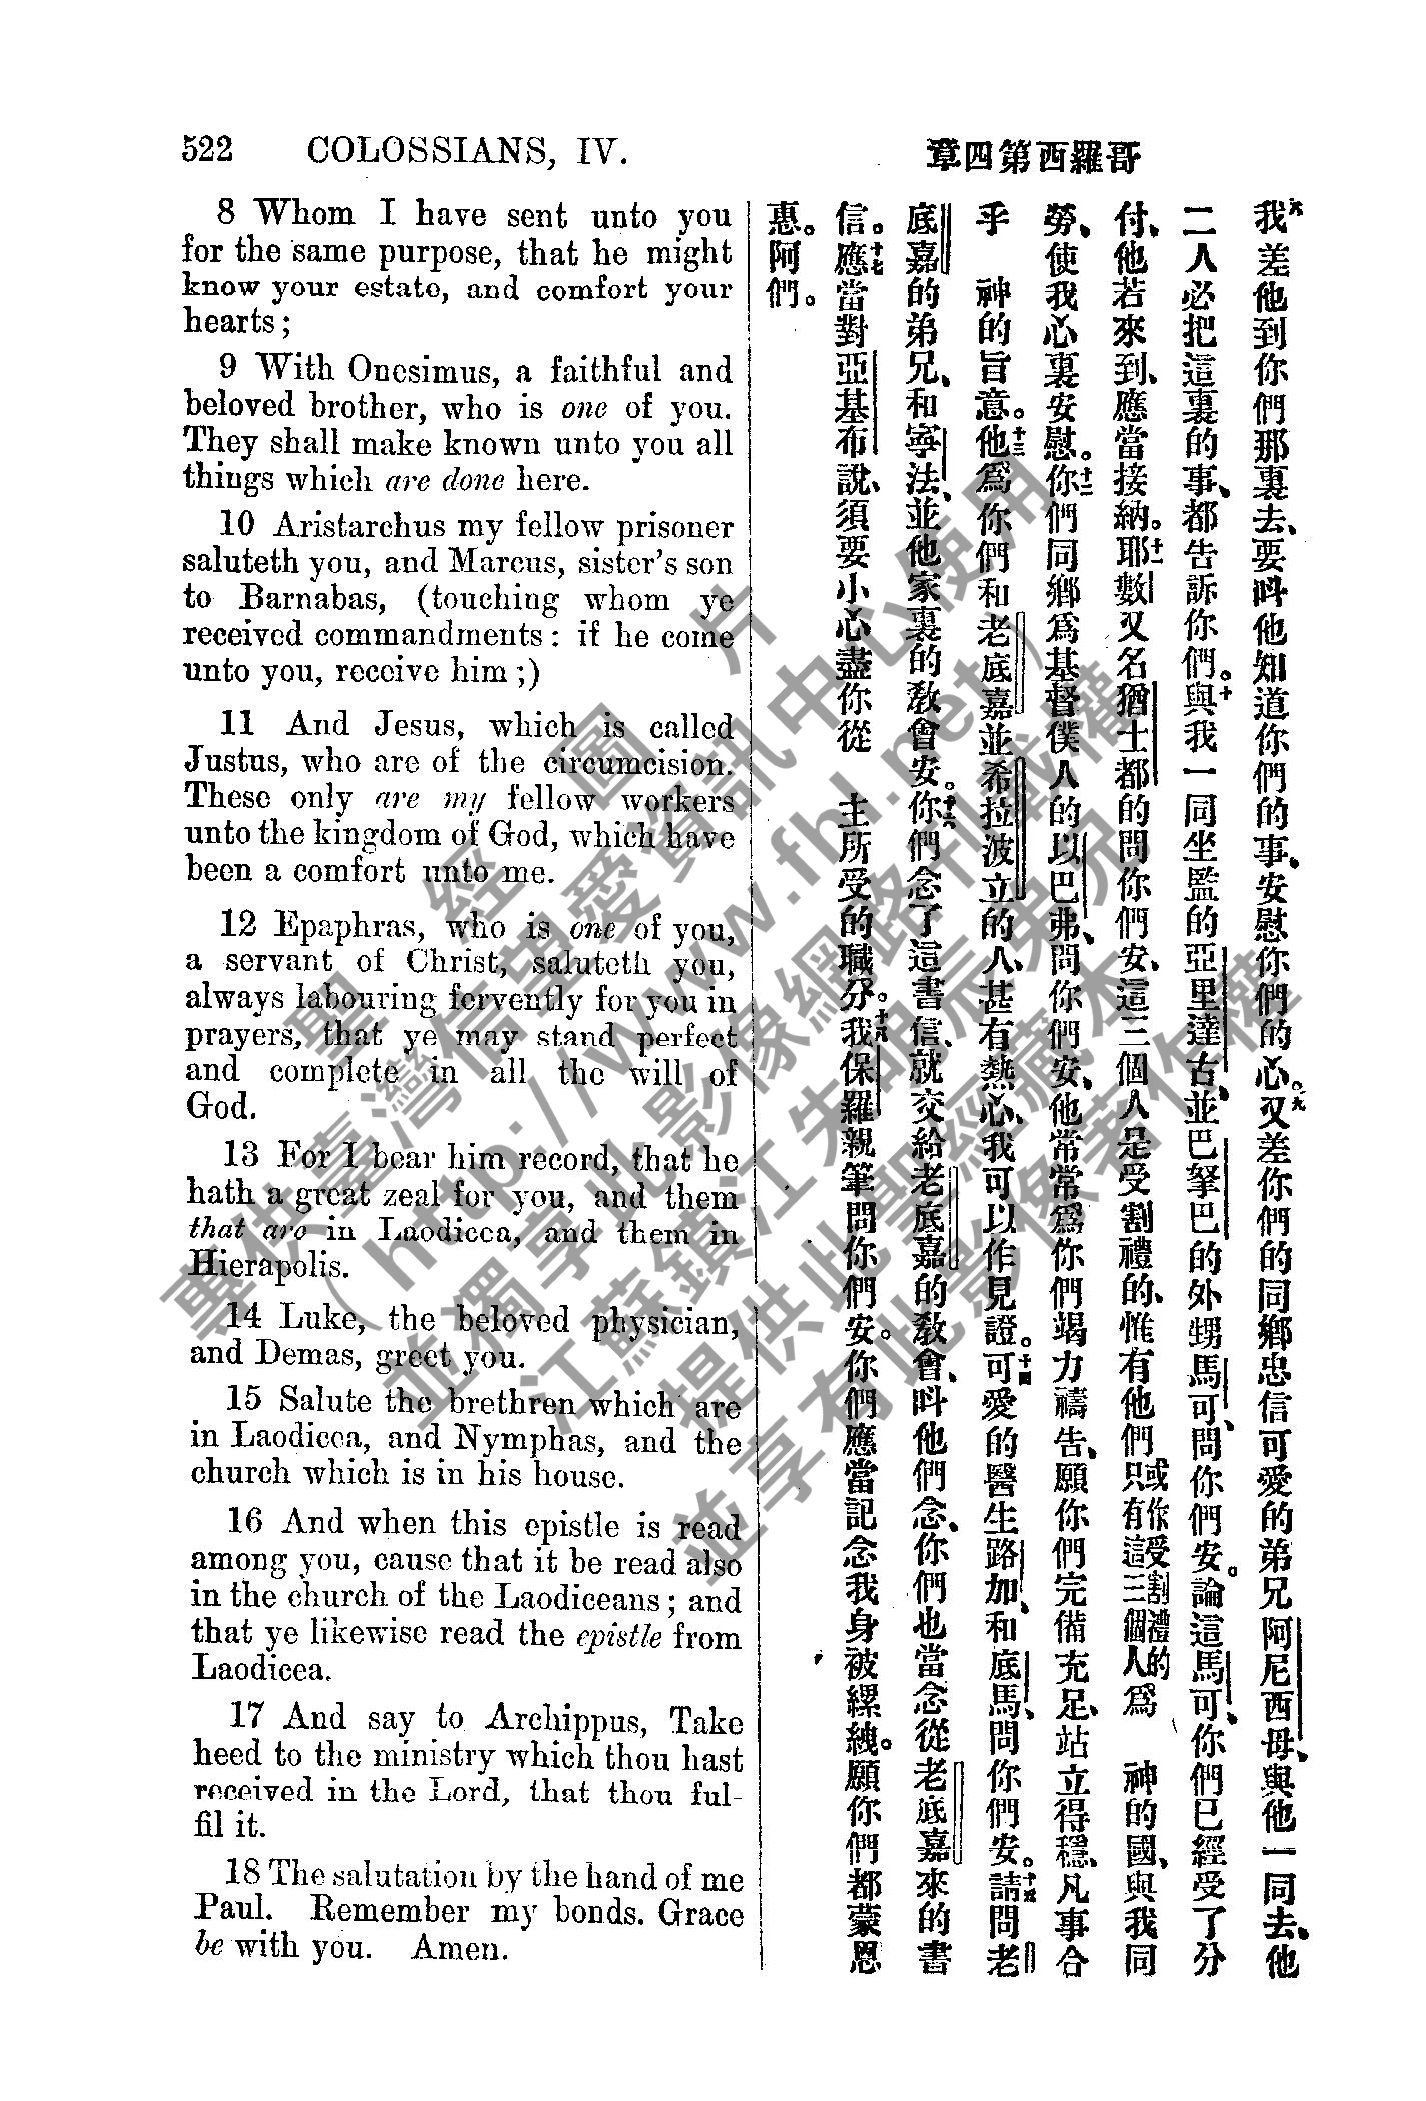 522 COLOSSIANS, IV.
8 Whom I have sent unto you
for the same purpose, that he might
know your estate, and comfort your
hearts;
9 With Onesimus, a faithful and
beloved brother, who is one of you.
They shall make known unto you all
things which are done here.
10 Aristarchus my fellow prisoner
saluteth you, and Marcus, sister's son
to Barnabas, (touching whom ye
received commandments: if he come
unto you, receive him;)
11 And Jesus, which is called
Justus, who are of the circumcision.
These only are my fellow workers
unto the kingdom of God, which have
been a comfort unto me.
12 Epaphras, who is one of you,
a servant of Christ, saluteth you,
always labouring fervently for you in
prayers, that ye may stand perfect
and complete in all the will of
God.
13 For I bear him record, that he
hath a great zeal for you, and them
that are in Laodicea, and them in
Hierapolis.
14 Luke, the beloved physician,
and Demas, greet you.
15 Salute the brethren which are
in Laodicea, and Nymphas, and the
church which is in his house.
16 And when this epistle is read
among you, cause that it be read also
in the church of the Laodiceans; and
that ye likewise read the epistle from
Laodicea.
17 And say to Archippus, Take
heed to the ministry which thou hast
received in the Lord, that thou ful-
fil it.
18 The salutation by the hand of me
Paul. Remember my bonds. Grace
be with you. Amen.
哥羅西第四章
八我差他到你們那裏去、要呌他知道你們的事、安慰你們的心。九又差你們的同鄉忠信可愛的弟兄阿尼西母、與他一同去、他
二人必把這裏的事、都告訴你們。十與我一同坐監的亞里達古、並巴拏巴的外甥馬可、問你們安。論這馬可、你們已經受了分
付、他若來到、應當接納。十一耶數又名猶士都的問你們安、這三個人是受割禮的、惟有他們或作受割禮的只有這三個人爲 神的國、與我同
勞、使我心裏安慰。十二你們同鄉爲基督僕人的以巴弗、問你們安、他常常爲你們竭力禱告、願你們完備充足、站立得穩、凡事合
乎 神的旨意。十三他爲你們和老底嘉並希拉波立的人、甚有熱心、我可以作見證。十四可愛的醫生路加、和底馬、問你們安。十五請問老
底嘉的弟兄、和寧法、並他家裏的教會安。十六你們念了這書信、就交給老底嘉的教會、呌他們念、你們也當念從老底嘉來的書
信。十七應當對亞基布說、須要小心盡你從 主所受的職分。十八我保羅親筆問你們安。你們應當記念我身被縲絏。願你們都蒙恩
惠。阿們。
聖經圖片
專供臺灣信望愛資訊中心使用
(http://www.fhl.net)
並獨享此影像網路刊載權
江蘇鎮江朱明宗弟兄
提供此聖經藏本
並享有此影像著作權